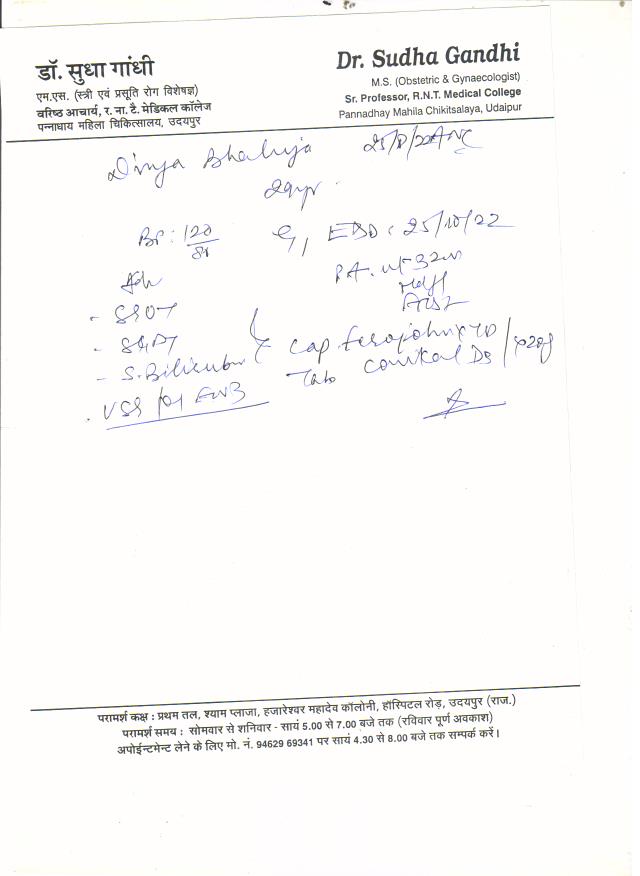 डॉ. सुधा गांधी
एम.एस. (स्त्री एवं प्रसूति रोग विशेषज्ञ)
वरिष्ठ आचार्य, र. ना. टै. मेडिकल कॉलेज
पन्नाधाय महिला चिकित्सालय, उदयपुर
Dr. Sudha Gandhi
M.S. (Obstetric & Gynaecologist)
Sr. Professor, R.N.T. Medical College
Pannadhay Mahila Chikitsalaya, Udaipur
ANC
29yr
BP: 120
G, EDD: 25/10/22
PA. ut 32w
- SGOT
- SGPT
- S. Bilirubin
Cap
Tab
. USG for FWB
परामर्श कक्ष : प्रथम तल, श्याम प्लाजा, हजारेश्वर महादेव कॉलोनी, हॉस्पिटल रोड़, उदयपुर (राज.)
परामर्श समय : सोमवार से शनिवार - सायं 5.00 से 7.00 बजे तक (रविवार पूर्ण अवकाश)
अपोईन्टमेन्ट लेने के लिए मो. नं. 94629 69341 पर सायं 4.30 से 8.00 बजे तक सम्पर्क करें।